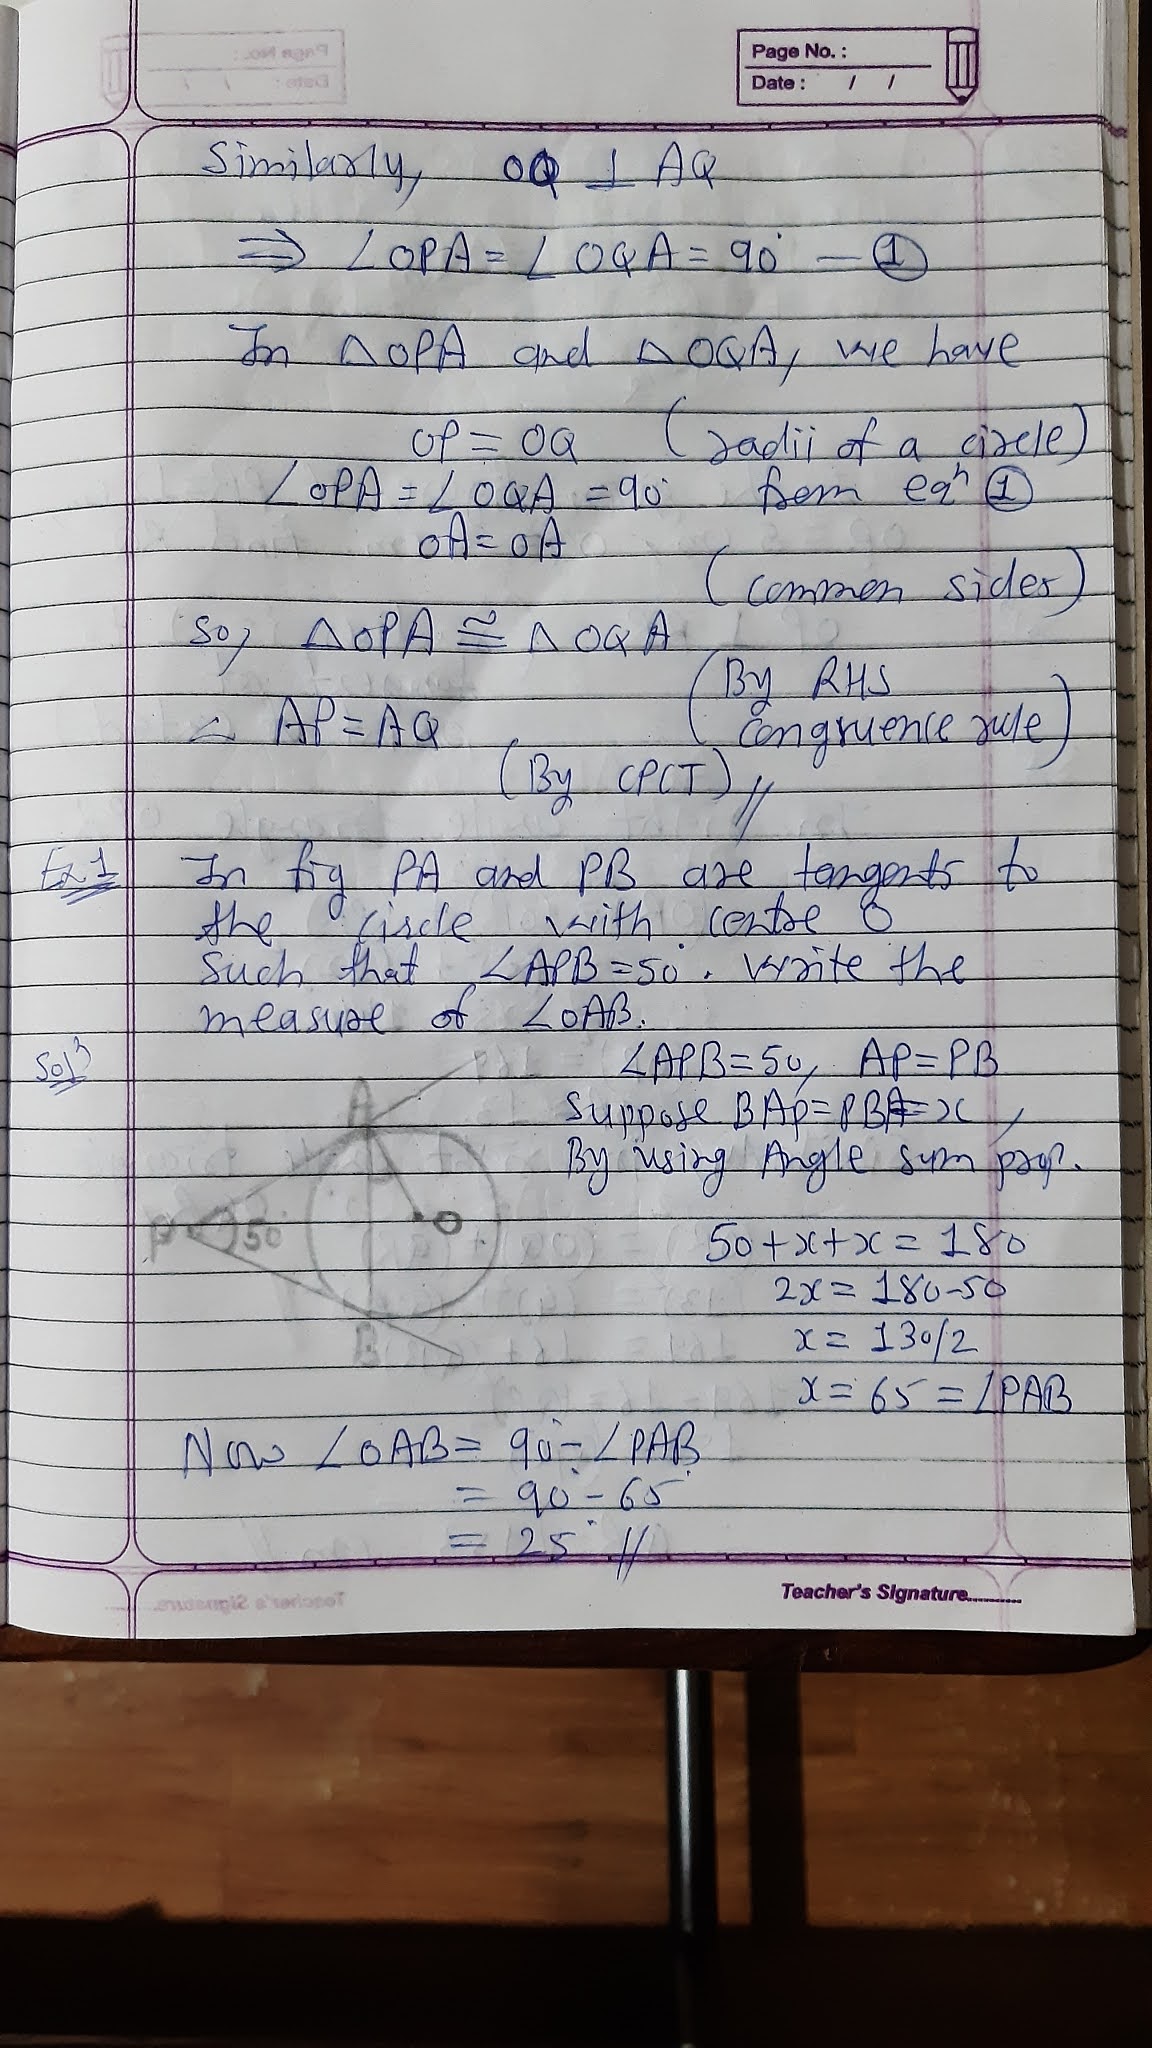 Page No. :
Date : / /
Similarly, OQ ⊥ AQ
⇒ ∠OPA = ∠OQA = 90° — ①
In △OPA and △OQA, we have
OP = OQ (radii of a circle)
∠OPA = ∠OQA = 90° from eqn ①
OA = OA
(common sides)
So, △OPA ≅ △OQA
(By RHS
congruence rule)
∴ AP = AQ
(By CPCT) //
Ex 1 In fig PA and PB are tangents to
the circle with centre O
such that ∠APB = 50°. Write the
measure of ∠OAB.
Soln
∠APB = 50, AP = PB
Suppose BAP = PBA = x,
By using Angle sum prop.
A
P 50° O
B
50 + x + x = 180
2x = 180 - 50
x = 130/2
x = 65 = ∠PAB
Now ∠OAB = 90° - ∠PAB
= 90° - 65°
= 25° //
Teacher's Signature..........